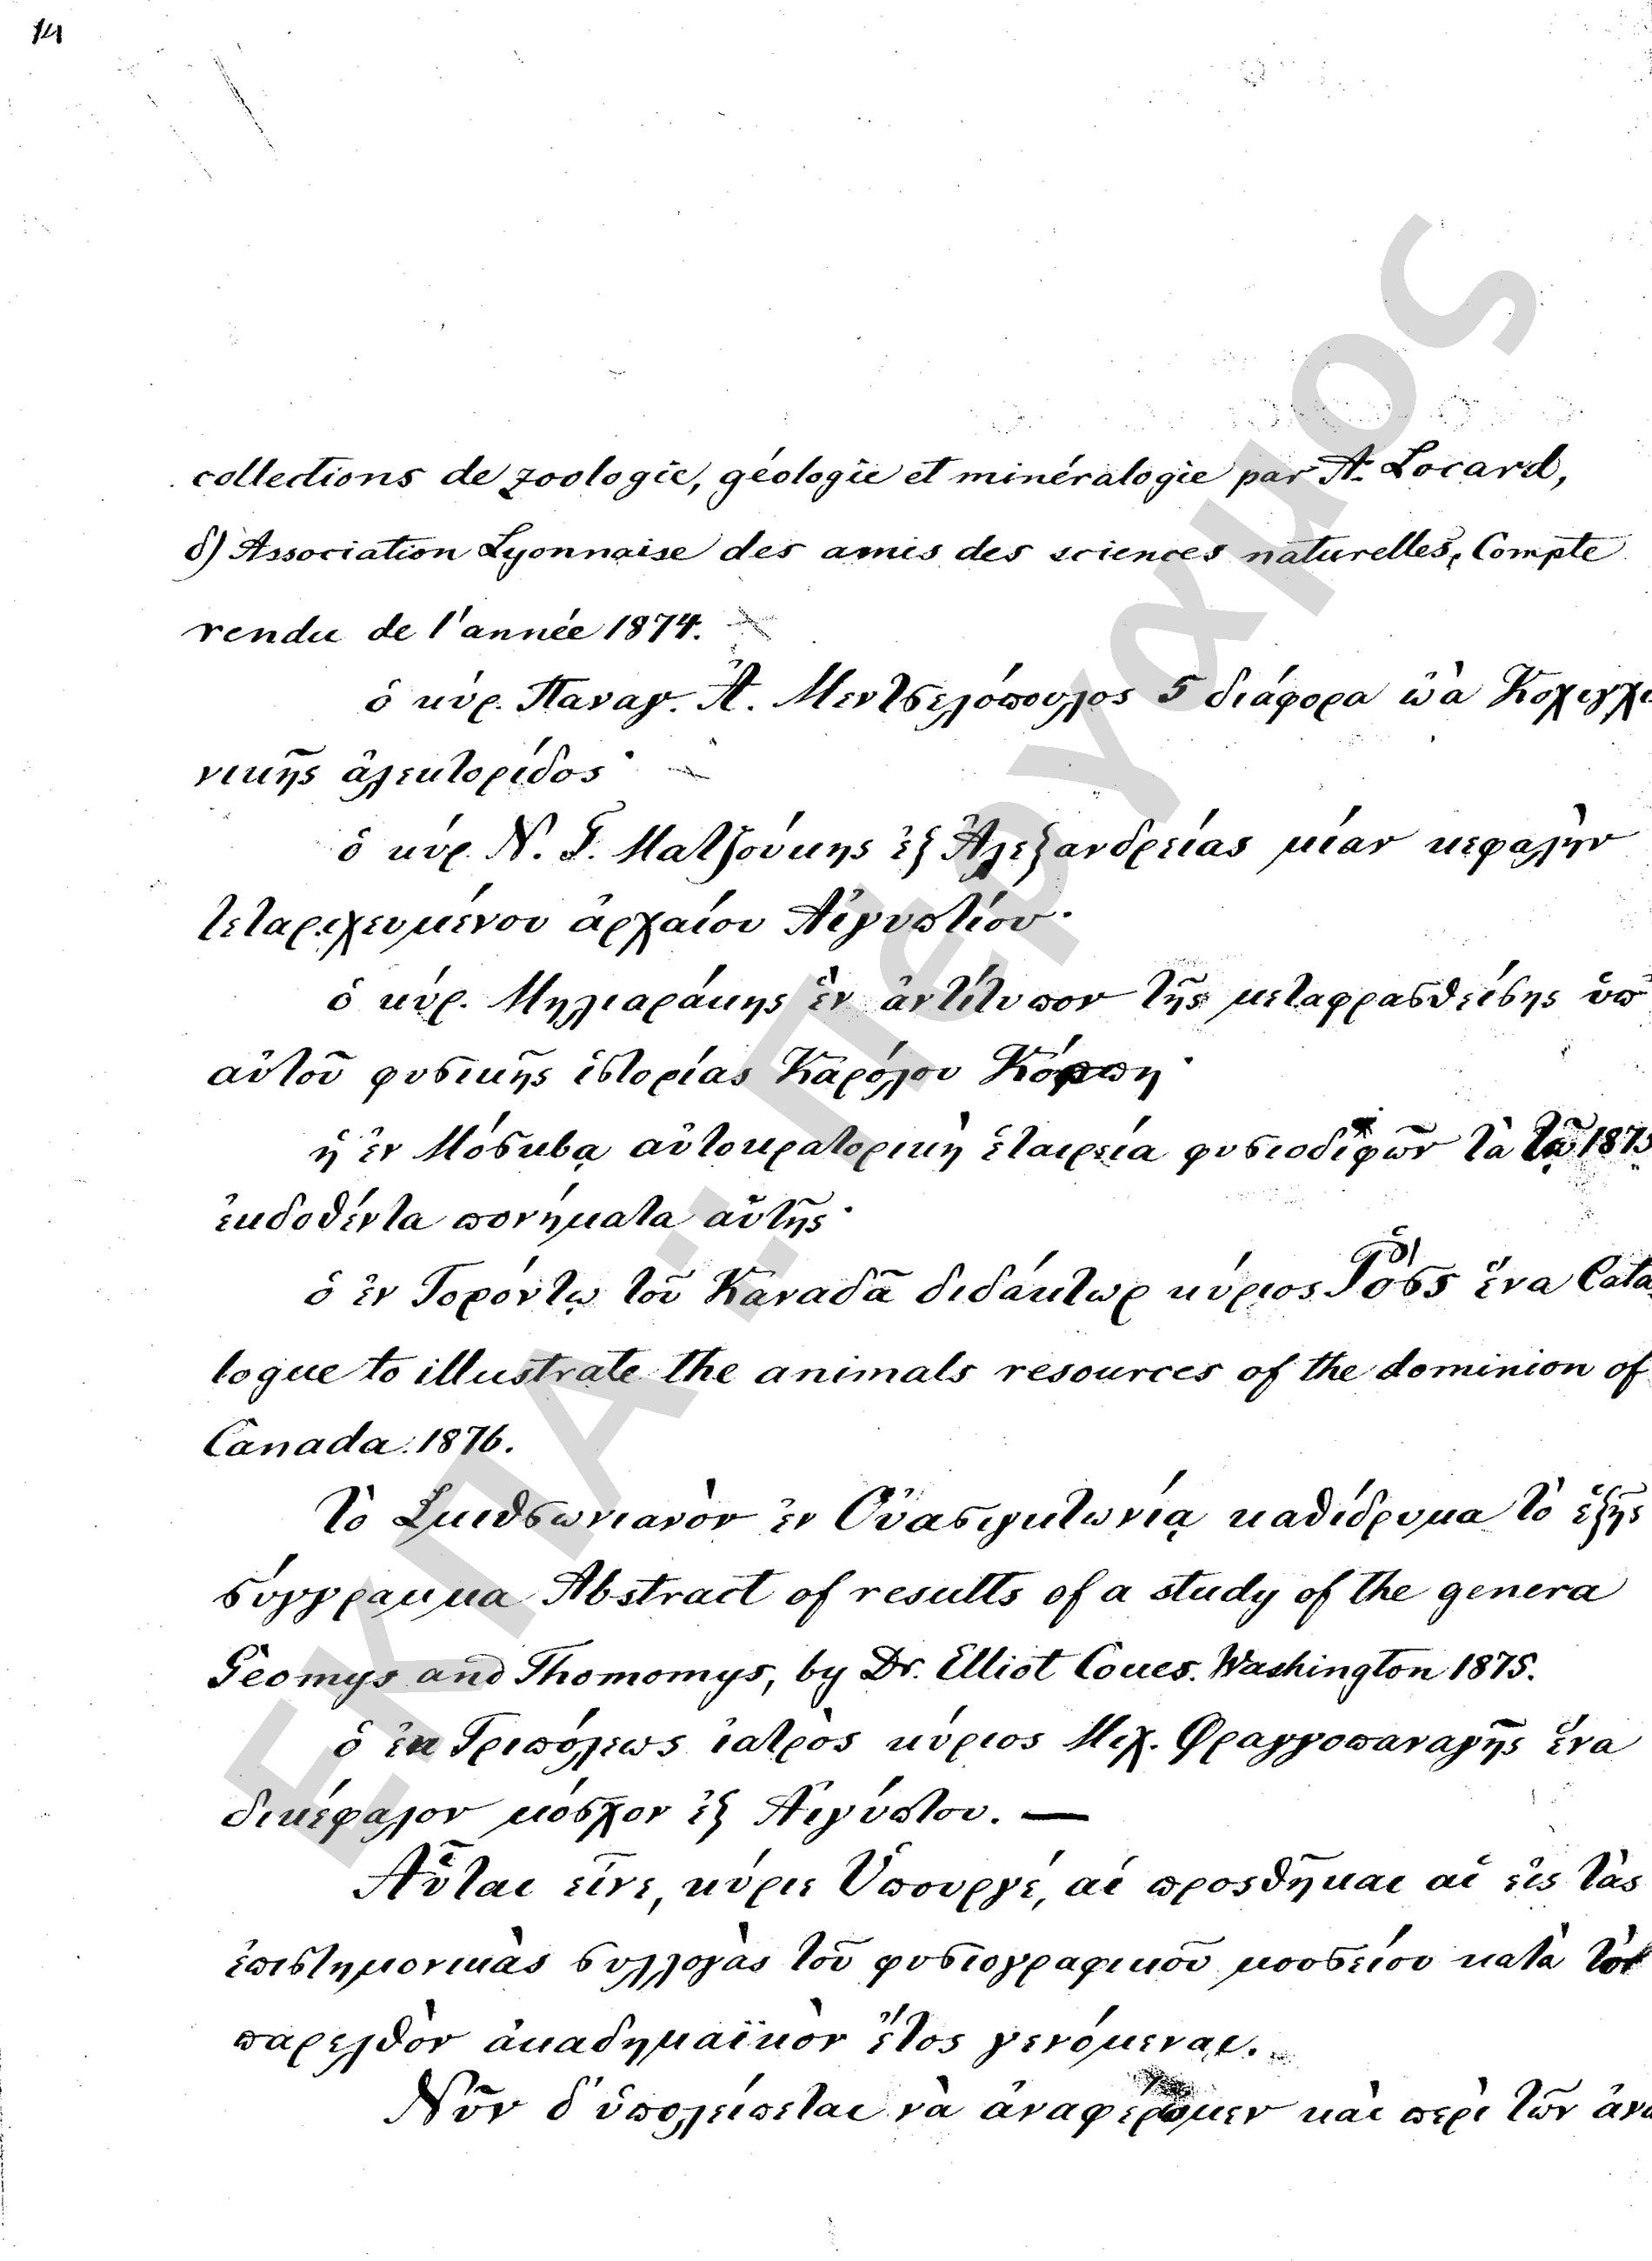 14
collections de zoologie, géologie et minéralogie par A. Locard,
δ) Association Lyonnaise des amis des sciences naturelles, Compte
rendu de l'année 1874.
ὁ κύρ. Παναγ. Ἀ. Μεντσελόπουλος 5 διάφορα ὠὰ
νικῆς ἀλεκτορίδος·
ὁ κύρ. Ν. Γ. Ματζούκης ἐξ Ἀλεξανδρείας μίαν κεφαλὴν
τεταριχευμένου ἀρχαίου Αἰγυπτίου·
ὁ κύρ. Μηλιαράκης ἓν ἀντίτυπον τῆς μεταφρασθείσης ὑπ'
αὐτοῦ φυσικῆς ἱστορίας Καρόλου Κόππη·
ἡ ἐν Μόσκβᾳ αὐτοκρατορικὴ ἑταιρεία φυσιοδιφῶν τὰ τῷ 1875
ἐκδοθέντα πονήματα αὐτῆς·
ὁ ἐν Τορόντῳ τοῦ Καναδᾶ διδάκτωρ κύριος Ῥὸςς ἕνα Cata
logue to illustrate the animals resources of the dominion of
Canada. 1876.
τὸ Σμιθσωνιανὸν ἐν Οὐασιγκτωνίᾳ καθίδρυμα τὸ ἑξῆς
σύγγραμμα Abstract of results of a study of the genera
Geomys and Thomomys, by Dr. Elliot Coues. Washington 1875.
ὁ ἐκ Τριπόλεως ἰατρὸς κύριος Μιχ. Φραγγοπαναγῆς ἕνα
δικέφαλον μόσχον ἐξ Αἰγύπτου. —
Αὗται εἶνε, κύριε Ὑπουργέ, αἱ προσθῆκαι αἱ εἰς τὰς
ἐπιστημονικὰς συλλογὰς τοῦ φυσιογραφικοῦ μουσείου κατὰ τὸ
παρελθὸν ἀκαδημαϊκὸν ἔτος γενόμεναι.
Νῦν δ' ὑπολείπεται νὰ ἀναφέρωμεν καὶ περὶ τῶν ἀνα
ΕΚΠΑ.: Πέργαμος